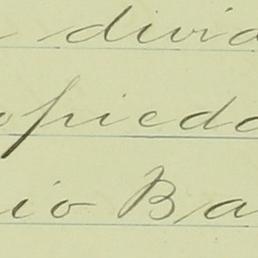 divid
opieda
io Ba